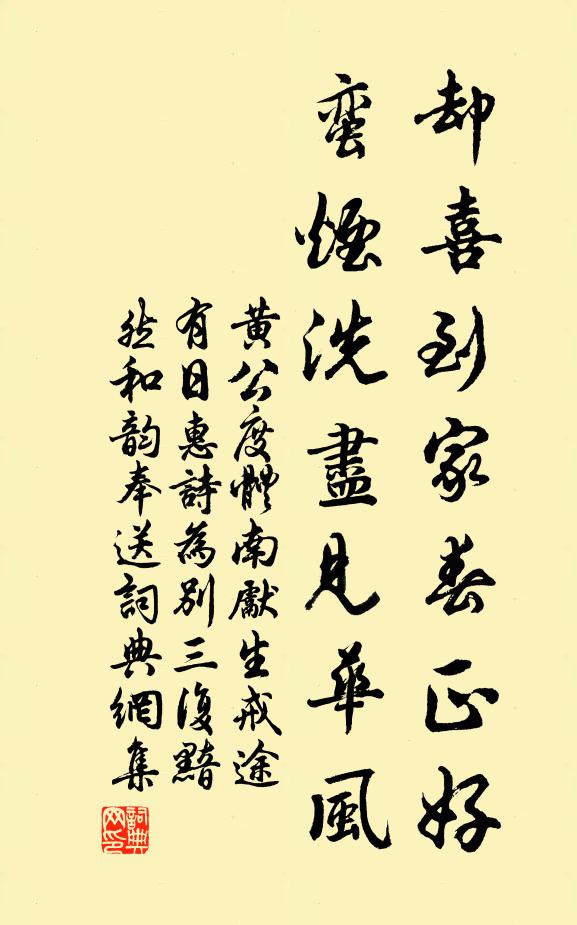 却喜到家春正好
蛮煙洗盡見華風
黄公度體南獻生戒途
有日惠詩為別三復黯
然和韵奉送詞典網集
詞典網印